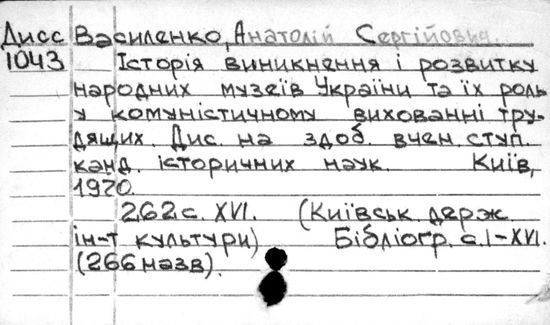 Дисс Василенко, Анатолій Сергійович.
1043 Історія виникнення і розвитку
народних музеїв України та їх роль
у комуністичному вихованні тру-
дящих. Дис. на здоб. вчен. ступ.
канд. історичних наук. Київ,
1970.
262 с. XVI. (Київськ. держ.
ін-т культури) Бібліогр. с. I-XVI.
(266 назв).